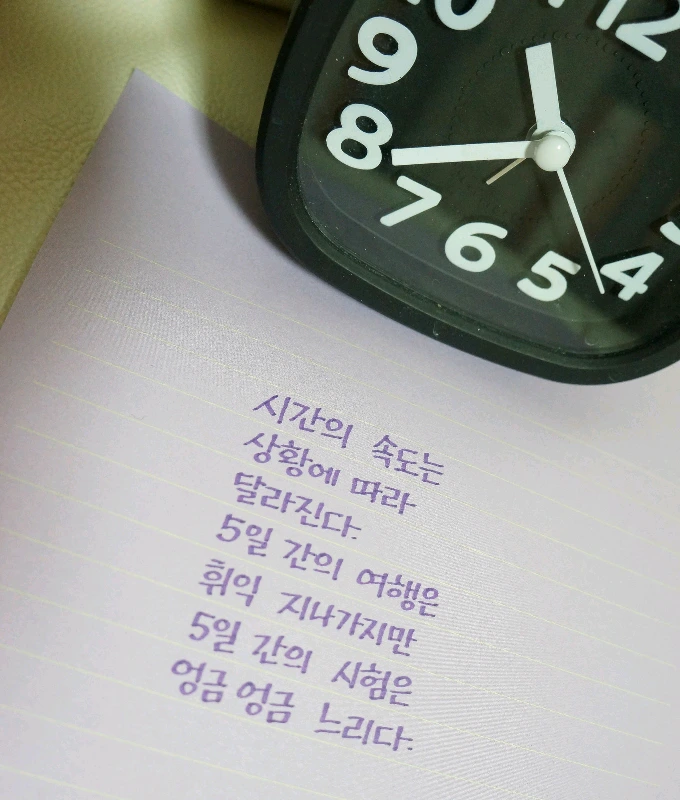 10 11 12
9
8
7 6 5 4
시간의 속도는
상황에 따라
달라진다.
5일 간의 여행은
휘익 지나가지만
5일 간의 시험은
엉금 엉금 느리다.